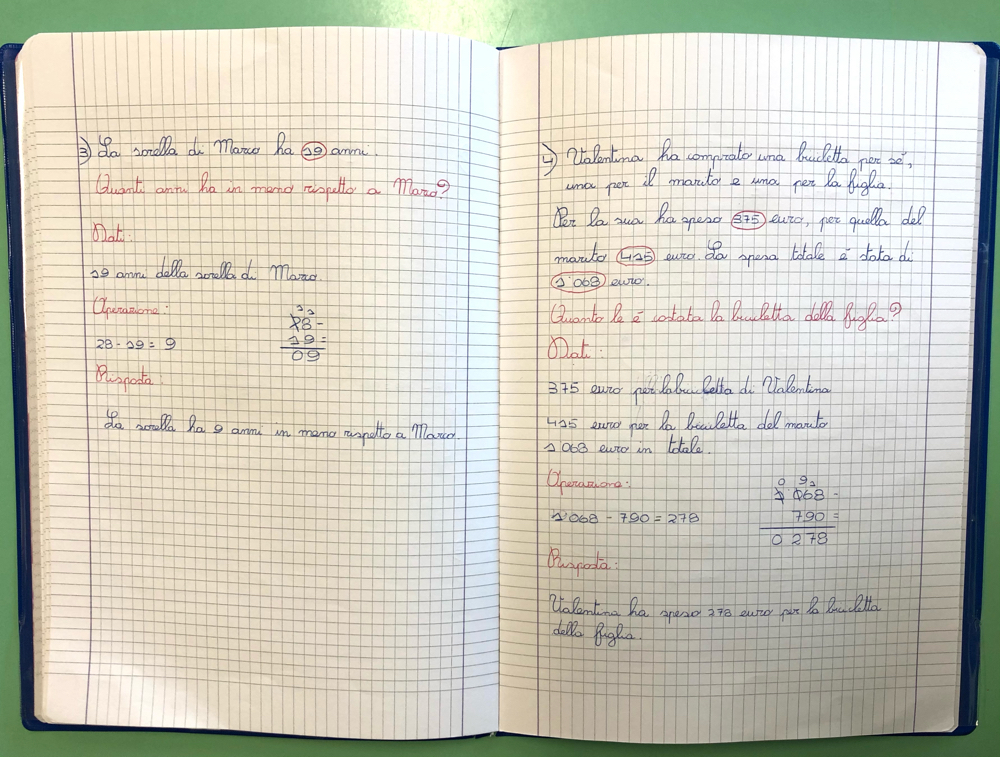 3) La sorella di Marco ha 19 anni.
Quanti anni ha in meno rispetto a Marco?
Dati:
19 anni della sorella di Marco.
Operazione:
28 -
28 - 19 = 9
19 =
09
Risposta:
La sorella ha 9 anni in meno rispetto a Marco.
4) Valentina ha comprato una bicicletta per sé,
una per il marito e una per la figlia.
Per la sua ha speso 375 euro, per quella del
marito 415 euro. La spesa totale è stata di
1'068 euro.
Quanto le è costata la bicicletta della figlia?
Dati:
375 euro per la bicicletta di Valentina
415 euro per la bicicletta del marito
1 068 euro in totale.
Operazione:
0 9 1
1'068 -
1'068 - 790 = 278
790 =
0 278
Risposta:
Valentina ha speso 278 euro per la bicicletta
della figlia.